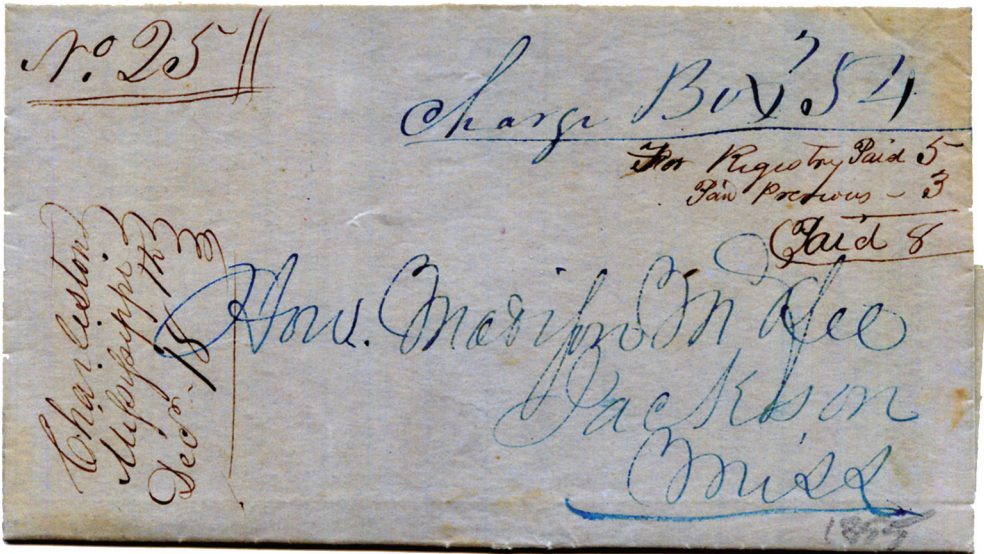 No. 25
Charge Box 54
For Registry Paid 5
Paid Previous - 3
Paid 8
Charleston
Mississippi
Decr. 18th
Hon. Madison McAfee
Jackson
Miss